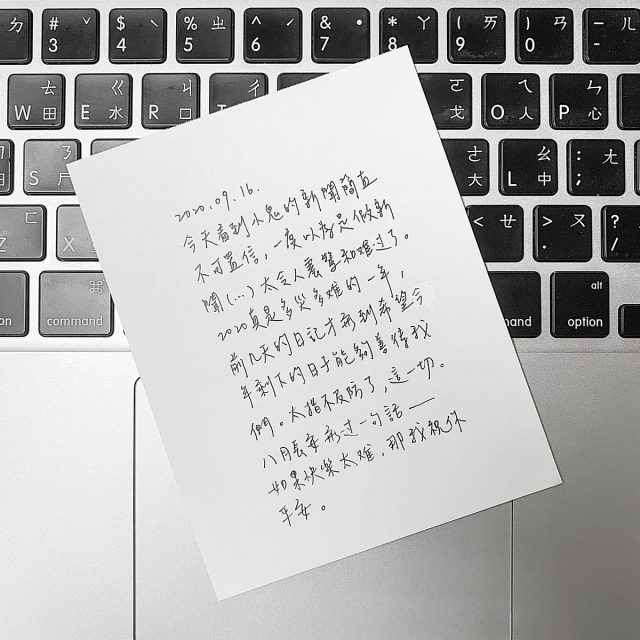 ㄉ # 3 ˇ $ 4 ˋ % 5 ㄓ ^ 6 ˊ & 7 ˙ * 8 ㄚ ( 9 ㄞ ) 0 ㄢ - ㄦ
W ㄊ 田 E ㄍ 水 R ㄐ 口 ㄔ ㄛ 戈 O ㄟ 人 P ㄣ 心
S ㄋ 尸 ㄜ 大 L ㄠ 中 : ; ㄤ
Z ㄈ X ㄌ < ㄝ > . ㄡ ? / ㄥ
option ⌘ command alt option
2020.09.16.
今天看到小鬼的新聞簡直
不可置信，一度以為是假新
聞(...)太令人震驚和难过了。
2020真是多災多难的一年，
前几天的日記才寫到希望今
年剩下的日子能夠善待我
們。太措不及防了，這一切。
八月底我寫过一句話——
如果快樂太难，那我祝你
平安。